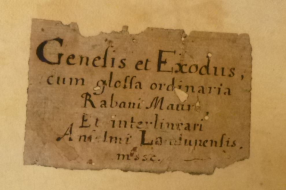 Genesis et Exodus,
cum glossa ordinaria
Rabani Mauri
Et interlineari
Anselmi